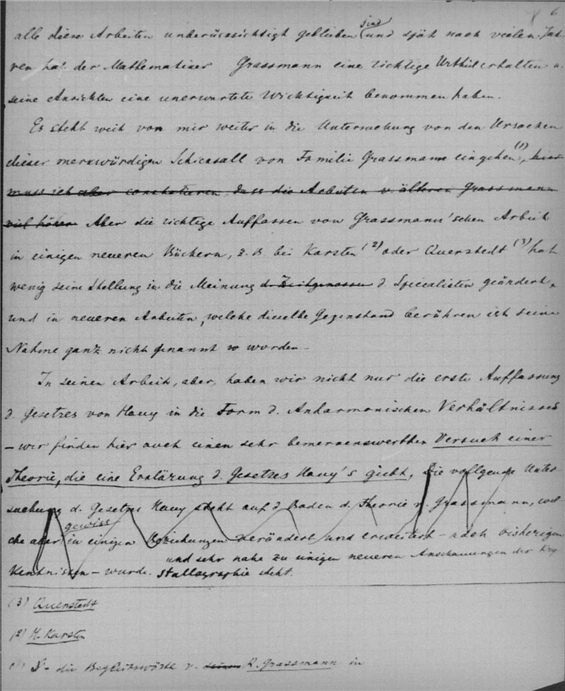 6
alle diese Arbeiten unberücksichtigt geblieben sind und spät nach vielen Jah-
ren hat der Mathematiker Grassmann eine richtige Urtheil erhalten u.
seine Ansichten eine unerwartete Wichtigkeit benommen haben.
Es steht weit von mir weiter in die Untersuchung von den Ursachen
dieser merkwürdigen Schicksall von Familie Grassmann eingehen (1), hier
muss ich aber constatieren, dass die Arbeiten v. älteren Grassmann
viel höher Aber die richtige Auffassen von Grassmann'schen Arbeit
in einigen neueren Büchern, z. B. bei Karsten (2) oder Quenstedt (3) hat
wenig seine Stellung in die Meinung d. Zeitgenossen d. Specialisten geändert,
und in neueren Arbeiten, welche dieselbe Gegenstand berühren ist seine
Nahme ganz nicht genannt worden.
In seinen Arbeit, aber, haben wir nicht nur die erste Auffassung
d. Gesetzes von Hauy in die Form d. Anharmonischen Verhältnisses
– wir finden hier auch einen sehr bemerkenswerthen Versuch einer
Theorie, die eine Erklärung d. Gesetzes Hauy's giebt, Die vollgende Unter-
suchung d. Gesetzes Hauy steht auf d. Boden d. Theorie v. Grassmann, wel-
che aber gewiss in einigen Beziehungen verändert und erweitert – nach bisherigen
Kentnissen – wurde. und sehr nahe zu einigen neueren Anschauungen der Kry-
stallographie steht.
(3) Quenstedt
(2) H. Karsten
(1) S. die Begleitworte v. R. Grassmann in